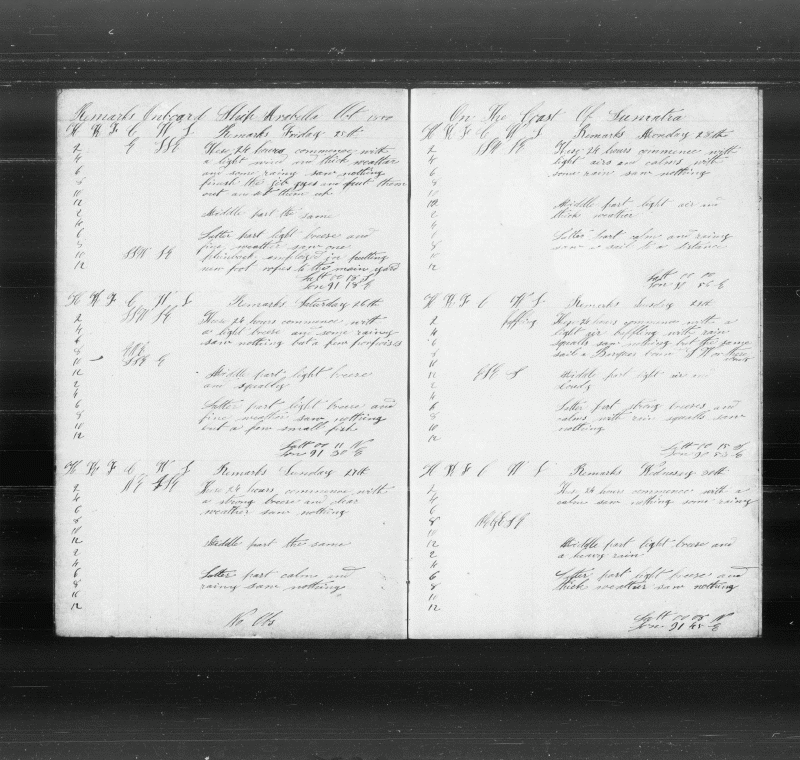 Remarks Onboard Ship Arabella Oct
H K F C W L Remarks Friday 25th
2 E SSE These 24 hours commence with
4 a light wind and thick weather
6 and some rainy saw nothing
8 finish the jib and put them
10 out and set them up
12
2 Middle part the same
4
6 Latter part light breeze and
8 fine weather saw one
10 SSW SE employed in putting
12 new foot ropes to the main yard
Latt 00 18 S
Lon 91 18 E
H K F C W L Remarks Saturday 26th
2 SSW SE These 24 hours commence with
4 a light breeze and some rainy
6 saw nothing but a few porpoises
8
10 SSE E
12 Middle part light breeze
2 and squally
4
6 Latter part light breeze and
8 fine weather saw nothing
10 but a few small fish
12
Latt 00 11 N
Lon 91 30 E
H K F C W L Remarks Sunday 27th
2 NE SE These 24 hours commence with
4 a strong breeze and clear
6 weather saw nothing
8
10
12 Middle part the same
2
4
6 Latter part calms and
8 rainy saw nothing
10
12
No Obs
On The Coast Of Sumatra
H K F C W L Remarks Monday 28th
2 SSW SE These 24 hours commence with
4 light airs and calms with
6 some rain saw nothing
8
10
12 Middle part light air and
2 thick weather
4
6 Latter part calm and rainy
8 saw a sail to a distance
10
12
Latt 00 00
Lon 91 56 E
H K F C W L Remarks 29th
2 These 24 hours commence with a
4 light air baffling with rain
6 squalls saw nothing but the same
8 sail a
10
12 ESE S Middle part light air and
2 cloudy
4
6 Latter part strong breezes and
8 calms with rain squalls saw
10 nothing
12
Latt 00 15
Lon 90 53 E
H K F C W L Remarks Wednesday 30th
2 These 24 hours commence with a
4 calm saw nothing some rainy
6
8
10
12 Middle part light breeze and
2 a heavy rain
4
6 Latter part light breeze and
8 thick weather saw nothing
10
12
Latt 00 08 N
Lon 91 45 E